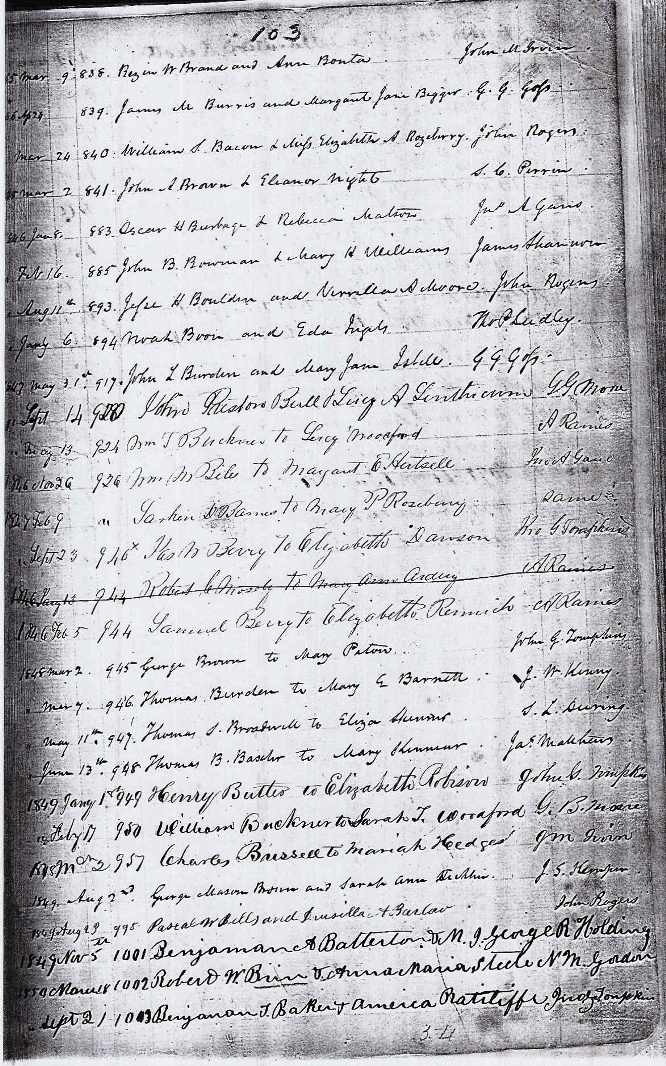 103
5 Mar 9 838. Rezin W Brand and Ann Bonta. John M. Irvin.
839. James M Burris and Margaret Jane Bigger. G. G. Goss
Mar 24 840. William S. Bacon & Miss Elizabeth A Rozeberry. John Rogers.
Mar 2 841. John A Brown & Eleanor Night S. C. Perrin.
Jan 8. 883. Oscar H Burbage & Rebecca Matson Jno A Gano
Feb 16. 885. John B. Bowman & Mary H Williams James Shannon
Aug 11th 893. Jesse H Bouldin and A Moore. John Rogers.
Jany 6 894 Noah Boon and Eda Ingels. Tho P Dudley.
May 31st 917. John L Burden and Mary Jane G G Goss.
Sept 14 920 John Preston Bull & Lucy A Linthicum G G Moore
13 924 Wm T Buckner to Lucy Woodford A Raines
1846 Nov 26 926 Wm M to Margaret E Hutsell Jno A Gano
1847 Feb 9 " Larkin D Barnes to Mary P Roseberry same
Sept 23 946 W Berry to Elizabeth Dawson Jno G Tompkins
13 944 Robert C to Mary Ann A Raines
1846 Feb 5 944 Samuel Berry to Elizabeth Rennick A Raines
1848 Mar 2. 945 George Brown to Mary Paton. John G. Tompkins
" Mar 7. 946. Thomas Burden to Mary E Barnett. J. W. Kenny.
" May 11th 947. Thomas S. Broadwell to Eliza Skinner. S. L.
" June 13th 948 Thomas B. to Mary Kenmear. Jas Matthews
1849 Jany 1st 949 Henry Butler to Elizabeth Robison John G. Tompkins
" Feby 17 950 William Buckner to Sarah T. Woodford G. B. Moore
2 957 Charles Bussell to Mariah Hedges J M Irvin
1849. Aug 2nd. George Mason Brown and Sarah Ann J. S. Kemper.
1849 Aug 23 995 Pascal W Bills and Drusilla A Barlow John Rogers
1849 Nov 5th 1001 Benjaman A Batterton & M. J. George R Holding
1850 March 18 1002 Robert W. Brin & Anna Maria Steele N. M. Gordon
" Sept 21 1003 Benjaman T. Baker & America Ratcliffe Jno G Tompkin
34